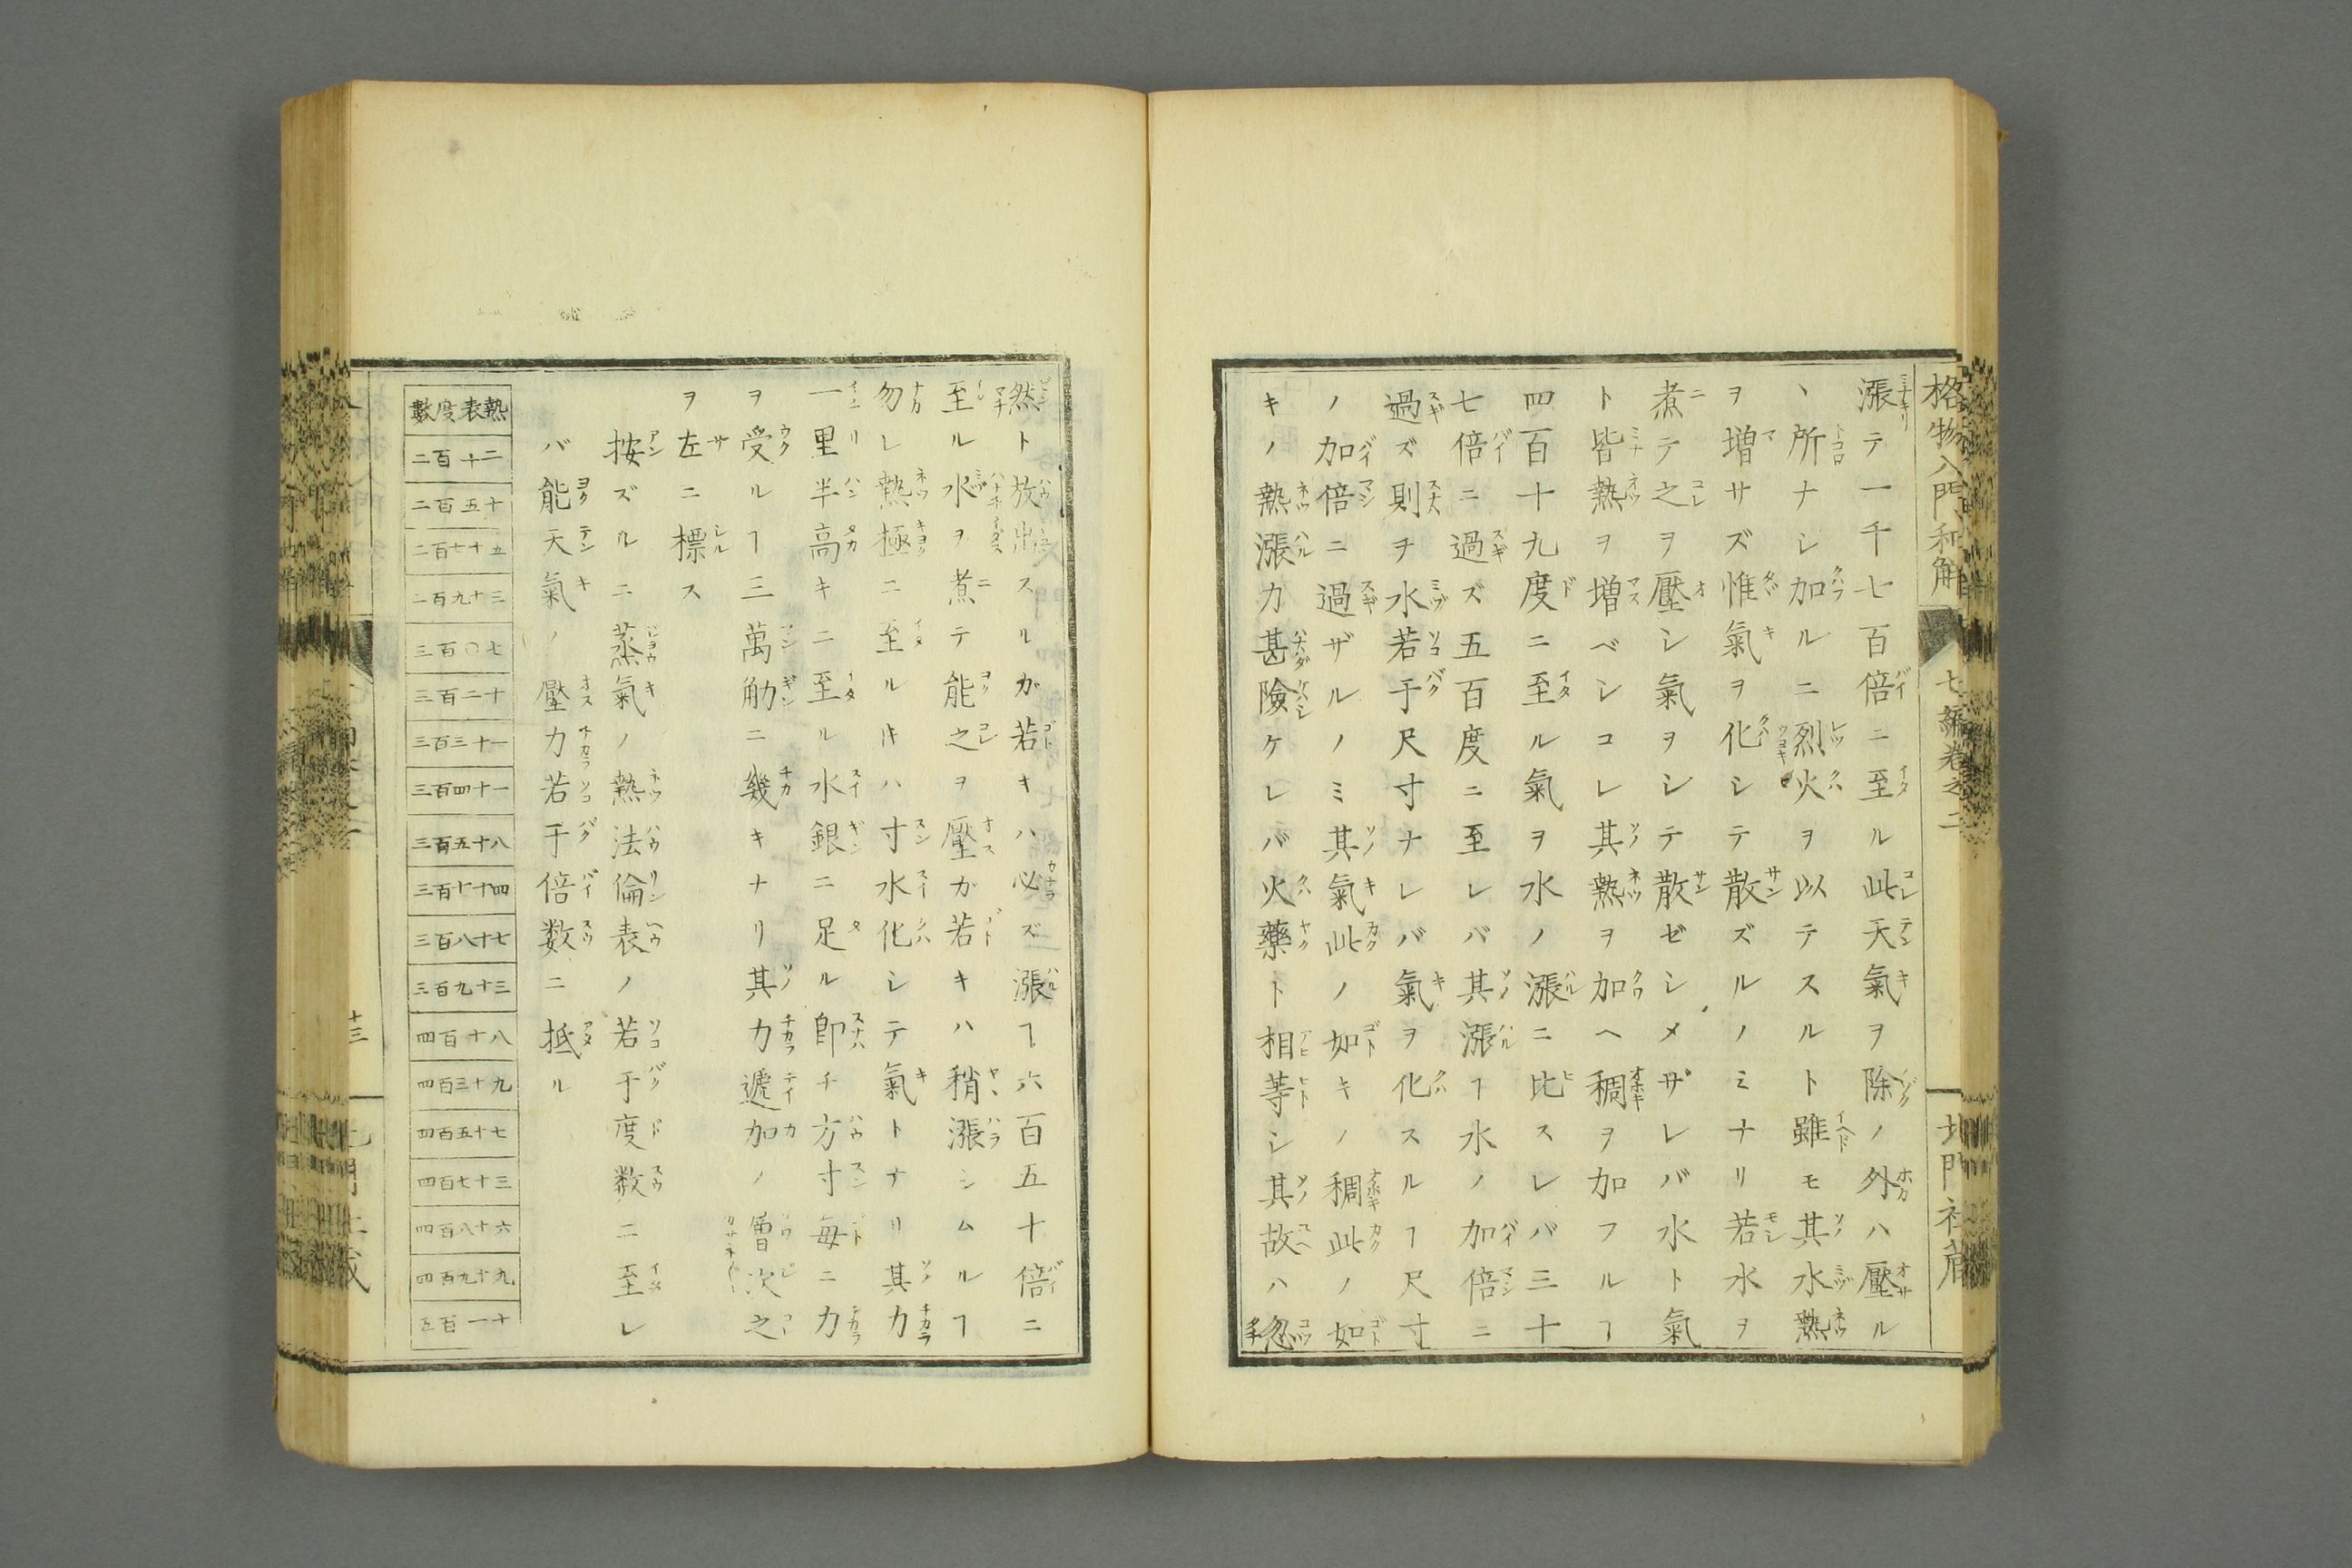 格物入門和解
七編卷之二
北門社蔵
漲テ一千七百倍ニ至ル此天氣ヲ除ノ外ハ壓ル
、所ナシ加ルニ烈火ヲ以テスルト雖モ其水熱
ヲ増サズ惟氣ヲ化シテ散ズルノミナリ若水ヲ
煮テ之ヲ壓シ氣ヲシテ散ゼシメザレバ水ト氣
ト皆熱ヲ増ベシコレ其熱ヲ加ヘ稠ヲ加フルヿ
四百十九度ニ至ル氣ヲ水ノ漲ニ比スレバ三十
七倍ニ過ズ五百度ニ至レバ其漲ヿ水ノ加倍ニ
過ズ則チ水若干尺寸ナレバ氣ヲ化スルヿ尺寸
ノ加倍ニ過ザルノミ其氣此ノ如キノ稠此ノ如
キノ熱漲力甚險ケレバ火藥ト相等シ其故ハ忽
然ト放出スルガ若キハ必ズ漲ヿ六百五十倍ニ
至ル水ヲ煮テ能之ヲ壓ガ若キハ稍漲シムルヿ
勿レ熱極ニ至ルキハ寸水化シテ氣トナリ其力
一里半高キニ至ル水銀ニ足ル即チ方寸毎ニ力
ヲ受ルヿ三萬觔ニ幾キナリ其力遞加ノ層次之
ヲ左ニ標ス
按ズルニ蒸氣ノ熱法倫表ノ若干度数ニ至レ
バ能天氣ノ壓力若干倍数ニ抵ル
熱表度數
二百十二
二百五十
二百七十五
二百九十三
三百〇七
三百二十
三百三十一
三百四十一
三百五十八
三百七十四
三百八十七
三百九十三
四百十八
四百三十九
四百五十七
四百七十三
四百八十六
四百九十九
五百一十
十三